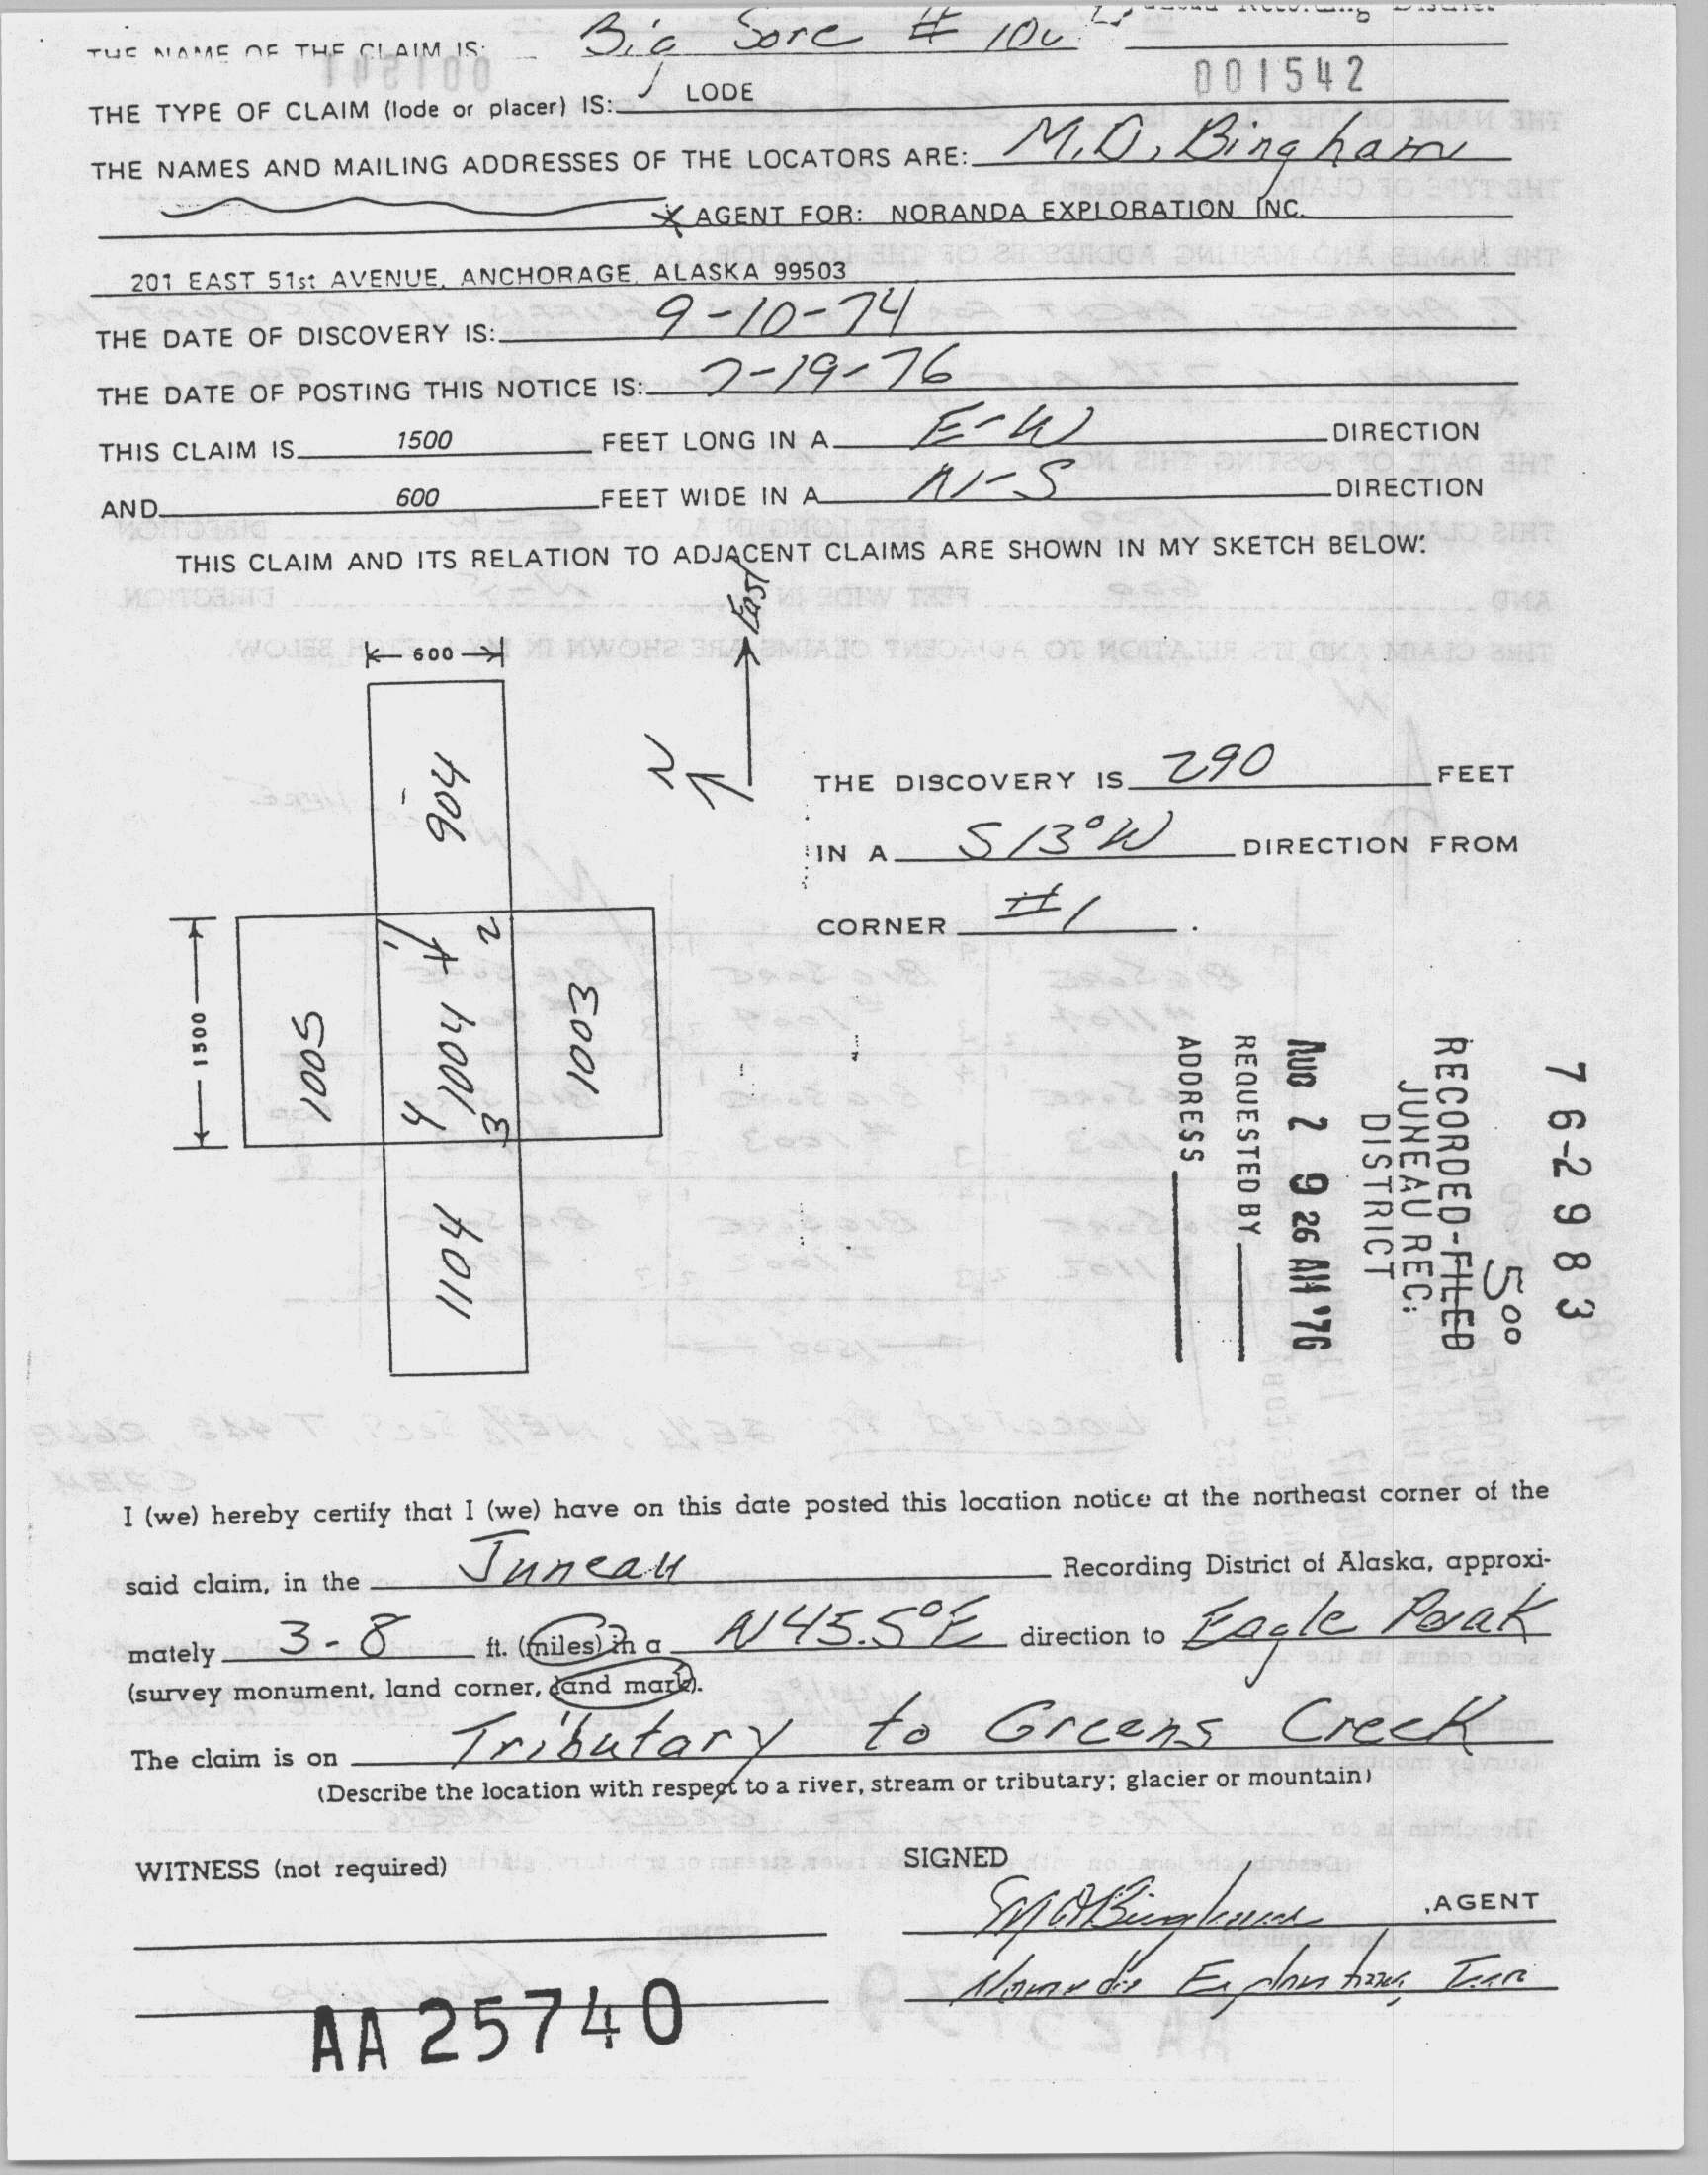 THE NAME OF THE CLAIM IS: Big Sore #
001542
THE TYPE OF CLAIM (lode or placer) IS: LODE
THE NAMES AND MAILING ADDRESSES OF THE LOCATORS ARE: M.D. Bingham
AGENT FOR: NORANDA EXPLORATION INC.
201 EAST 51st AVENUE, ANCHORAGE, ALASKA 99503
THE DATE OF DISCOVERY IS: 9-10-74
THE DATE OF POSTING THIS NOTICE IS: 7-19-76
THIS CLAIM IS 1500 FEET LONG IN A E-W DIRECTION
AND 600 FEET WIDE IN A N-S DIRECTION
THIS CLAIM AND ITS RELATION TO ADJACENT CLAIMS ARE SHOWN IN MY SKETCH BELOW:
East
N
600
904
1500
1005
1 2
1004
4 3
1003
1104
THE DISCOVERY IS 290 FEET
IN A S 13° W DIRECTION FROM
CORNER #1.
76-2983
5 00
RECORDED-FILED
JUNEAU REC.
DISTRICT
AUG 2 9 26 AM '76
REQUESTED BY
ADDRESS
I (we) hereby certify that I (we) have on this date posted this location notice at the northeast corner of the
said claim, in the Juneau Recording District of Alaska, approxi-
mately 3-8 ft. (miles) in a N45.5°E direction to Eagle Peak
(survey monument, land corner, land mark).
The claim is on Tributary to Greens Creek
(Describe the location with respect to a river, stream or tributary; glacier or mountain)
WITNESS (not required)
SIGNED
MD Bingham, AGENT
Noranda Exploration, Inc
AA 25740